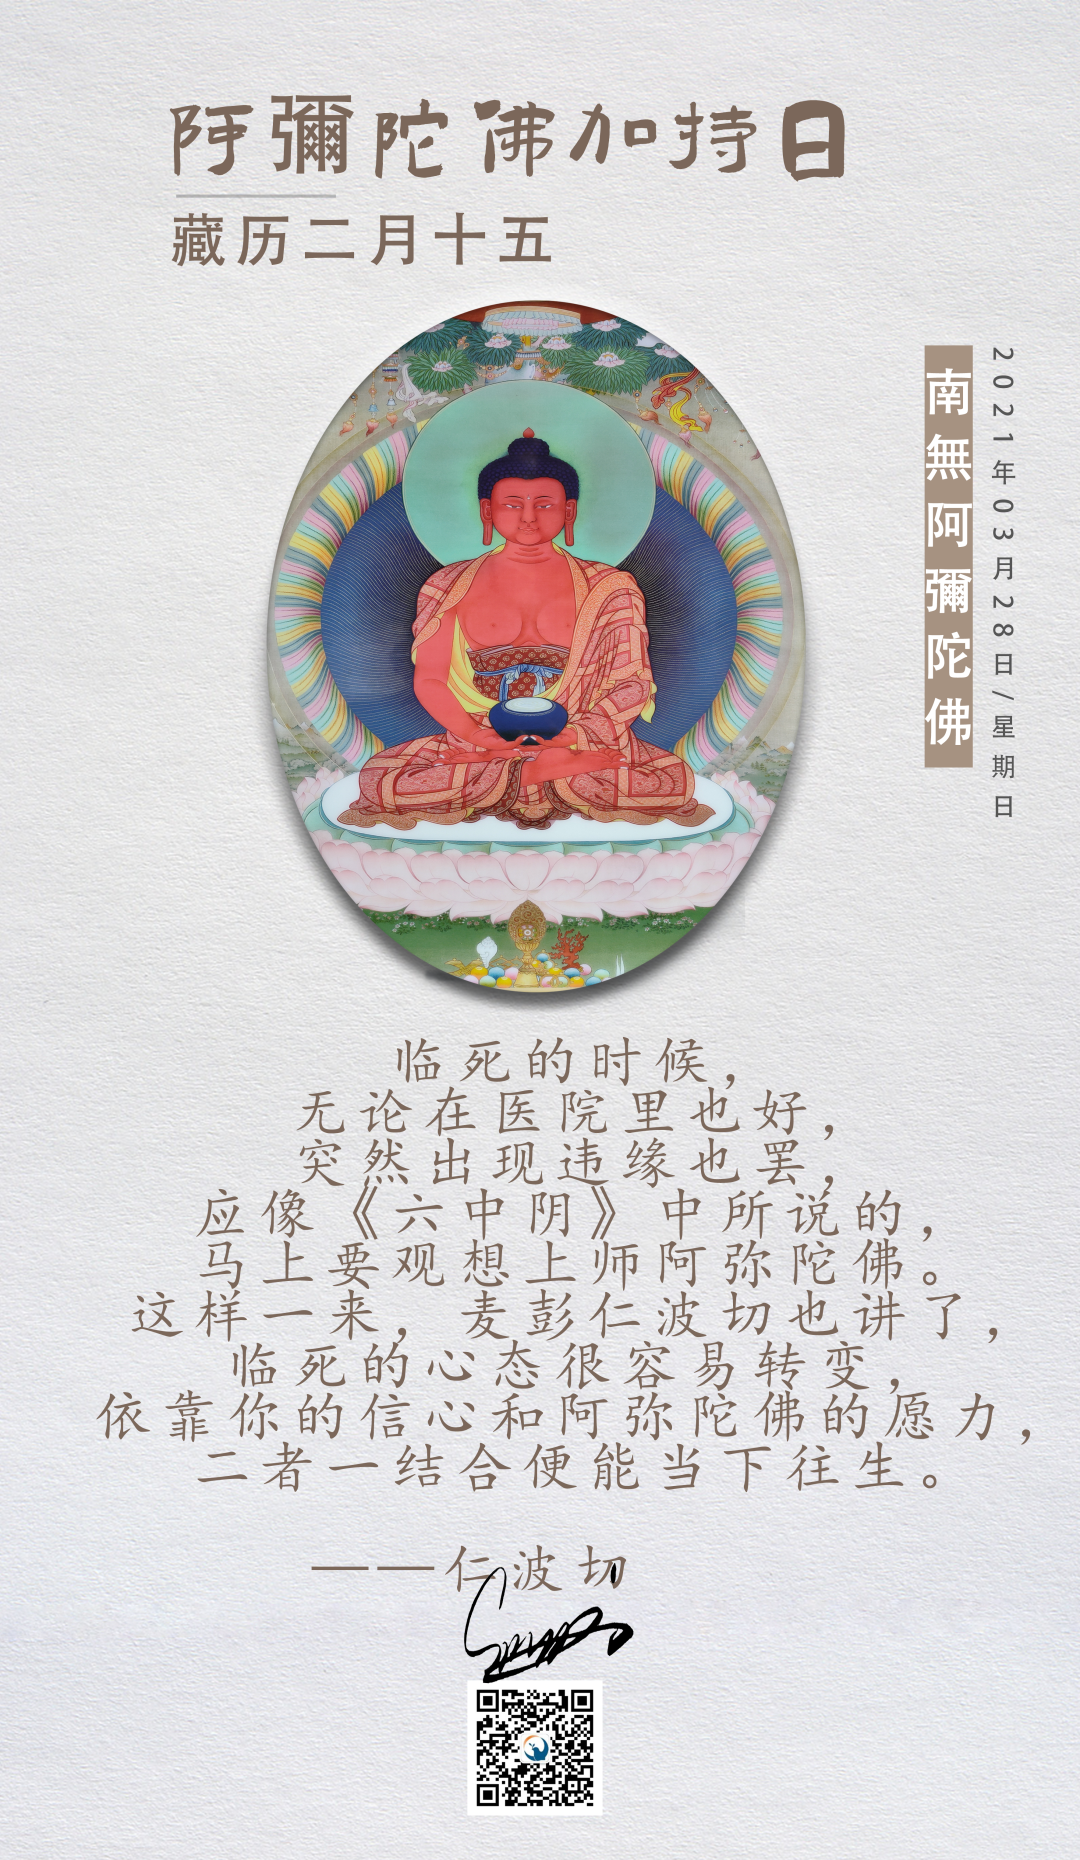 阿彌陀佛加持日
藏历二月十五
南無阿彌陀佛
2021年03月28日/星期日
临死的时候，
无论在医院里也好，
突然出现违缘也罢，
应像《六中阴》中所说的，
马上要观想上师阿弥陀佛。
这样一来，麦彭仁波切也讲了，
临死的心态很容易转变，
依靠你的信心和阿弥陀佛的愿力，
二者一结合便能当下往生。
——仁波切